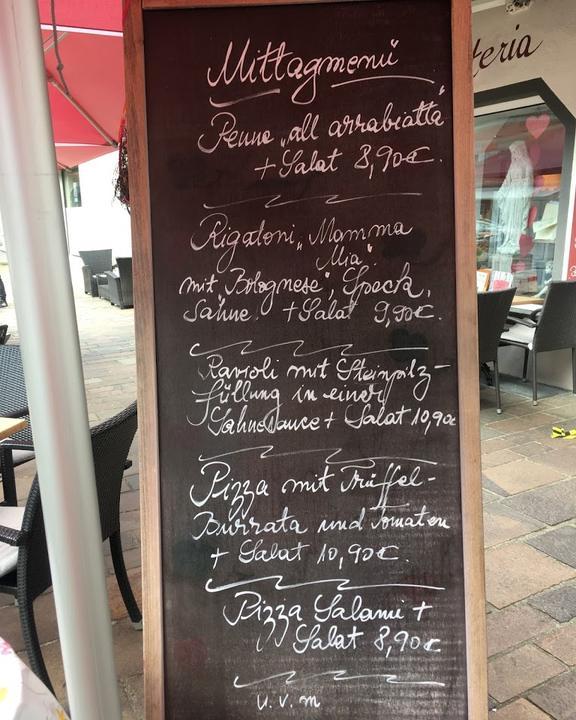 teria
Mittagmenü
Penne „all arrabiatta"
+ Salat 8,90€.
Rigatoni „Mamma
Mia"
mit „Bolognese", Speck,
Sahne. + Salat 9,90€.
Ravioli mit Steinpilz-
füllung in einer
Sahnesauce + Salat 10,90€
Pizza mit Trüffel-
Burrata und Tomaten
+ Salat 10,90€.
Pizza Salami +
Salat 8,90€
u.v.m